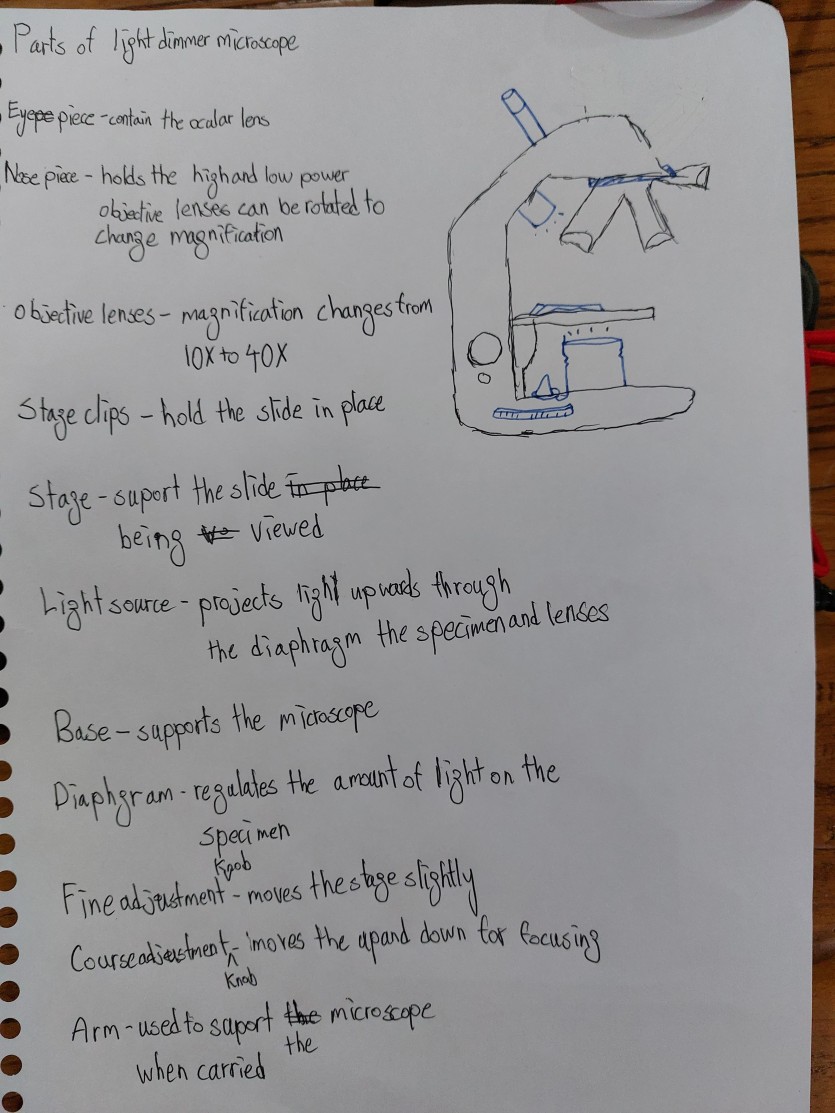 Parts of light dimmer microscope
Eyepe piece - contain the ocular lens
Nose piece - holds the high and low power
objective lenses can be rotated to
change magnification
Objective lenses - magnification changes from
10X to 40X
Stage clips - hold the slide in place
Stage - suport the slide in place
being ve viewed
Light source - projects light upwards through
the diaphragm the specimen and lenses
Base - supports the microscope
Diaphgram - regulates the amount of light on the
specimen
Knob
Fine adjustment - moves the stage slightly
Course adjustment - moves the up and down for focusing
Knob
Arm - used to suport the microscope
the
when carried